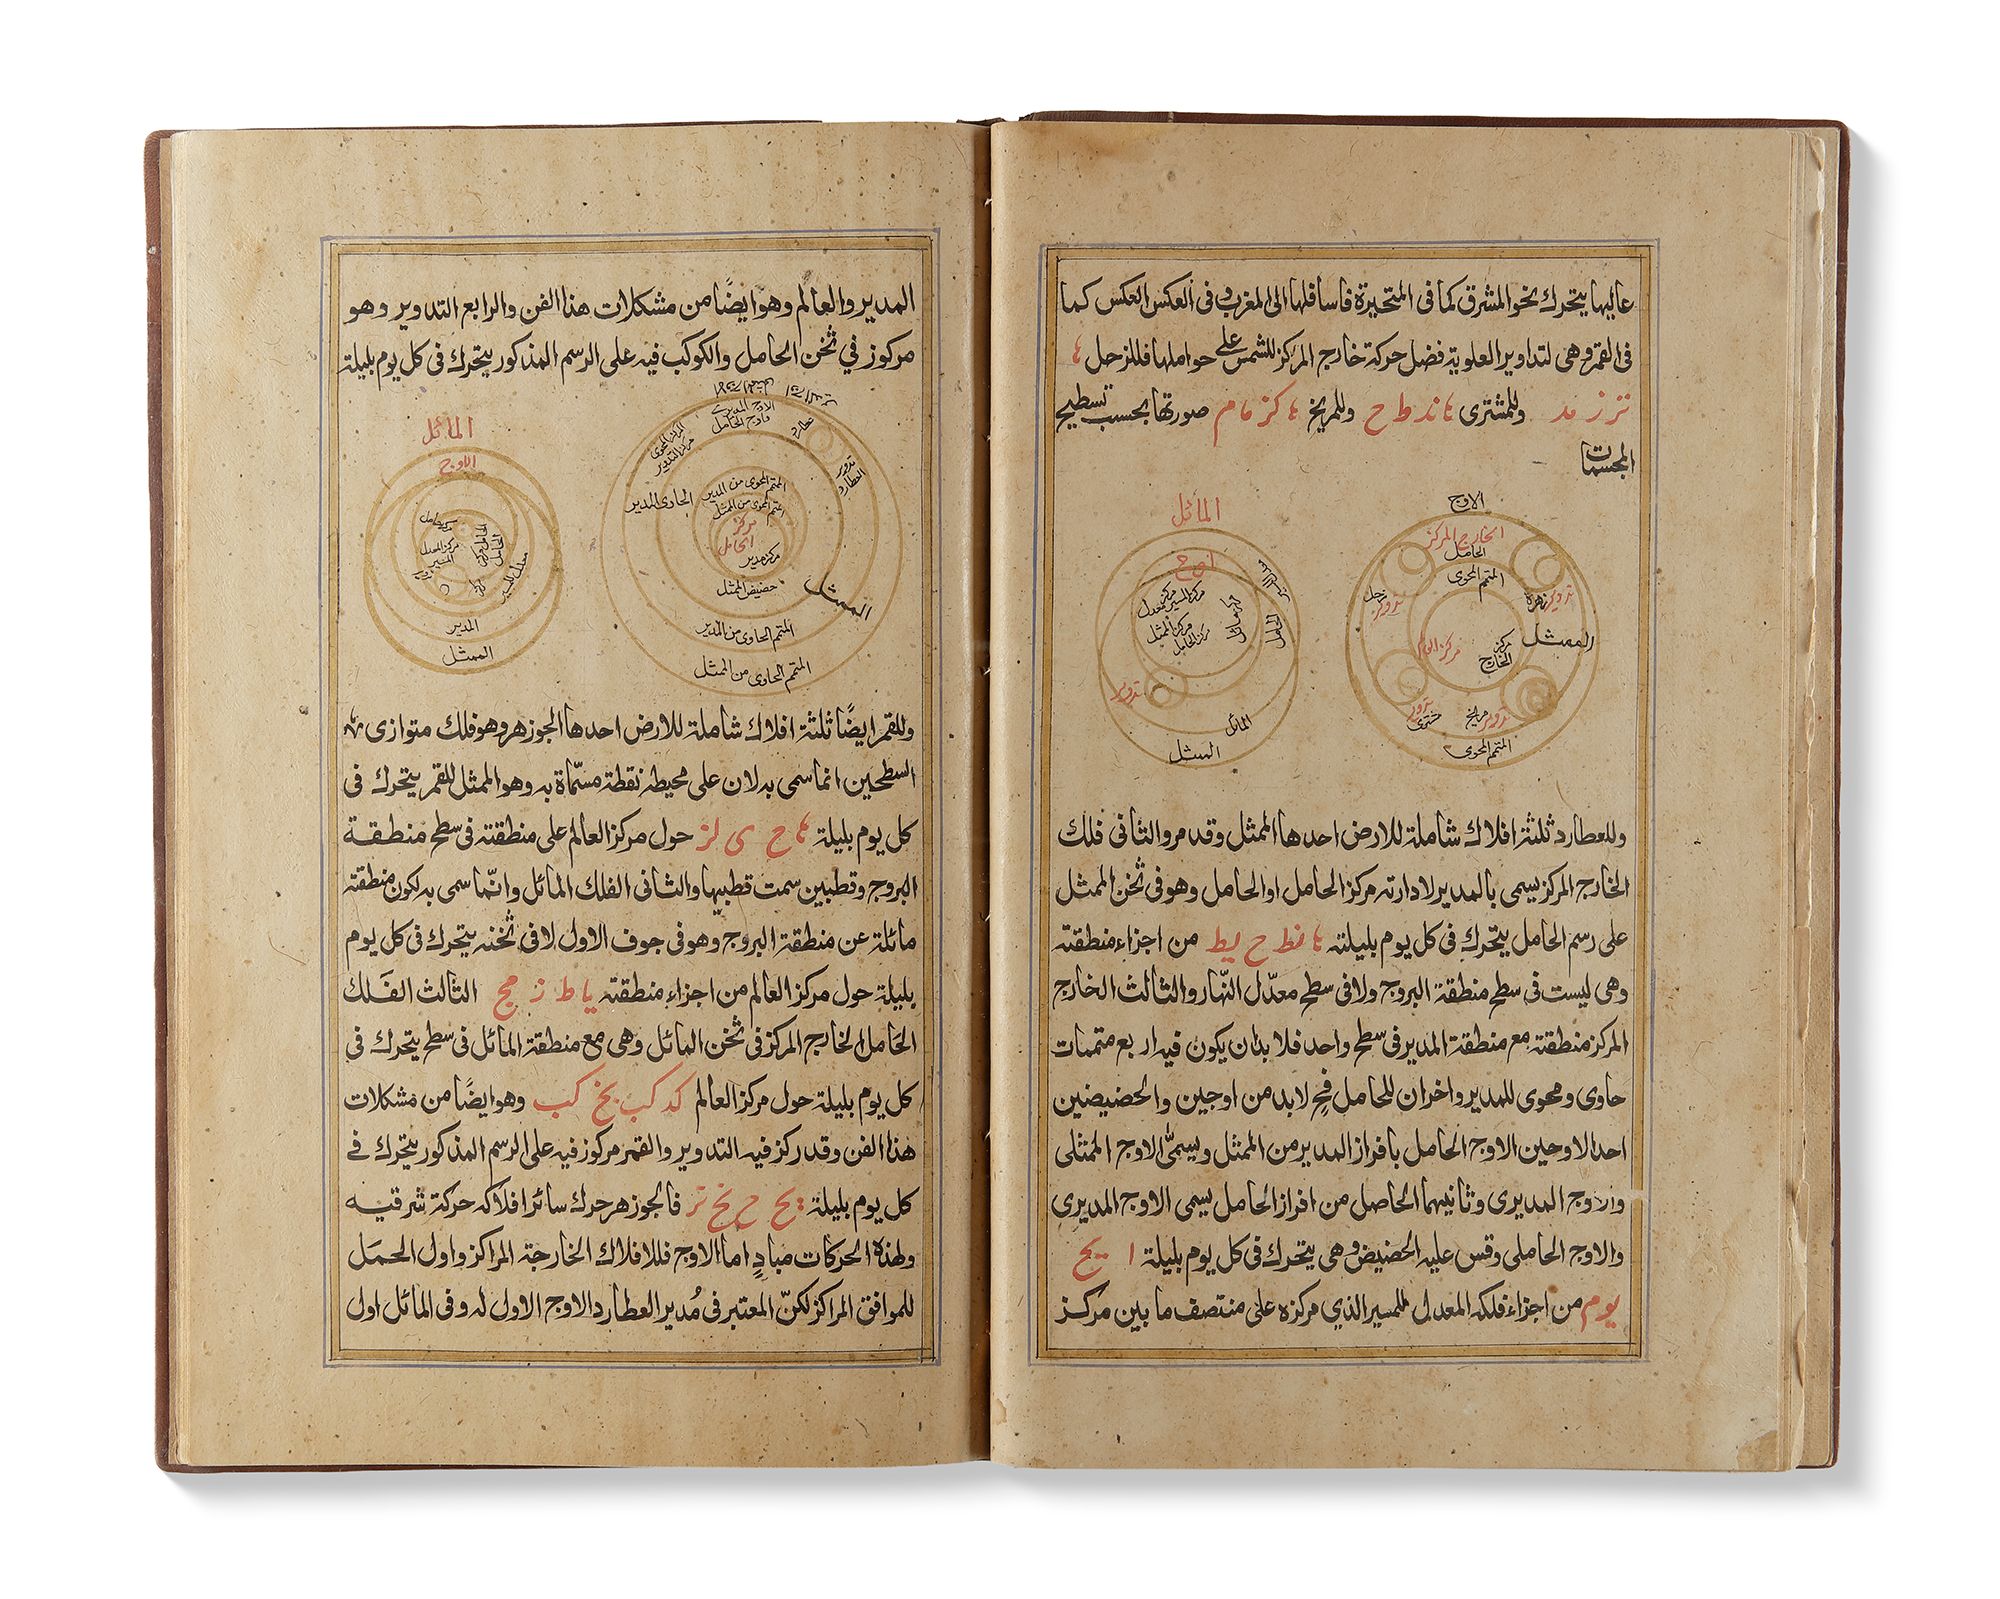 عاليها يتحرك نحو المشرق كما فى المتحيرة فاسافلها الى المغرب و فى العكس العكس كما
فى القمر وهى لتداوير العلوية فضل حركة خارج المركز للشمس على حواملها فللزحل
نز ز مد وللمشترى ند ط ح وللمريخ كز ما م صورتها بحسب تسطيح
المجسمات
الاوج
الخارج المركز
الحامل
المتمم المحوى
تدوير زهرة
تدوير زحل
الممثل
مركز
الخارج
تدوير مريخ
تدوير
المتمم المحوى
المائل
اوج
الحامل
تدوير
المائل
الممثل
وللعطارد ثلثة افلاك شاملة للارض احدها الممثل وقد مر والثانى فلك
الخارج المركز يسمى بالمدير لادارته مركز الحامل او الحامل وهو فى ثخن الممثل
على رسم الحامل يتحرك فى كل يوم بليلته نط ح يط من اجزاء منطقته
وهى ليست فى سطح منطقة البروج ولا فى سطح معدّل النّهار والثالث الخارج
المركز منطقته مع منطقة المدير فى سطح واحد فلا بد ان يكون فيه اربع متممات
حاوى ومحوى للمدير واخران للحامل فح لا بد من اوجين والحضيضين
احد الاوجين الاوج الحامل بافراز المدير من الممثل ويسمىّ الاوج الممثلى
والاوج المديرى وثانيهما الحاصل من افراز الحامل يسمى الاوج المديرى
والاوج الحاملى وقس عليه الحضيض وهى يتحرك فى كل يوم بليلة ا يح
يوم من اجزاء فلكه المعدل للمسير الذي مركزه على منتصف ما بين مركز
المدير والعالم وهو ايضًا من مشكلات هذا الفن والرابع التدوير وهو
مركوز في ثخن الحامل والكوكب فيه على الرسم المذكور يتحرك فى كل يوم بليلة
الاوج المديرى
واوج الحامل
مركز التدوير
عطارد
تدوير
العطارد
الحاوى المدير
المتمم المحوى من المدير
المتمم المحوى من الممثل
مركز
الحامل
مركز مدير
حضيض الممثل
الممثل
المتمم الحاوى من المدير
المتمم الحاوى من الممثل
المائل
الاوج
مركز حامل
مركز المعدل
المسير
المدير
الممثل
وللقمر ايضًا ثلثة افلاك شاملة للارض احدها الجوزهر وهو فلك متوازى
السطحين انما سمى به لان على محيطه نقطة مسمّاة به وهو الممثل للقمر يتحرك فى
كل يوم بليلة ح ى لز حول مركز العالم على منطقته فى سطح منطقة
البروج وقطبين سمت قطبيها والثانى الفلك المائل وانّما سمى به لكون منطقته
مائلة عن منطقة البروج وهو فى جوف الاول لا فى ثخنه يتحرك فى كل يوم
بليلة حول مركز العالم من اجزاء منطقته يا ط ز مج الثالث الفَلك
الحامل الخارج المركز فى ثخن المائل وهى مع منطقة المائل فى سطح يتحرك في
كل يوم بليلة حول مركز العالم كد كب نخ كب وهو ايضًا من مشكلات
هذا الفن وقد ركز فيه التدوير والقمر مركوز فيه على الرسم المذكور يتحرك في
كل يوم بليلة يح ح نخ نز فالجوزهر حرك سائر افلاكه حركة شرقيه
ولهذه الحركات مبادٍ اما الاوج فللافلاك الخارجة المراكز واول الحمَل
للموافق المراكز لكنّ المعتبر فى مُدير العطارد الاوج الاول له وفى المائل اول